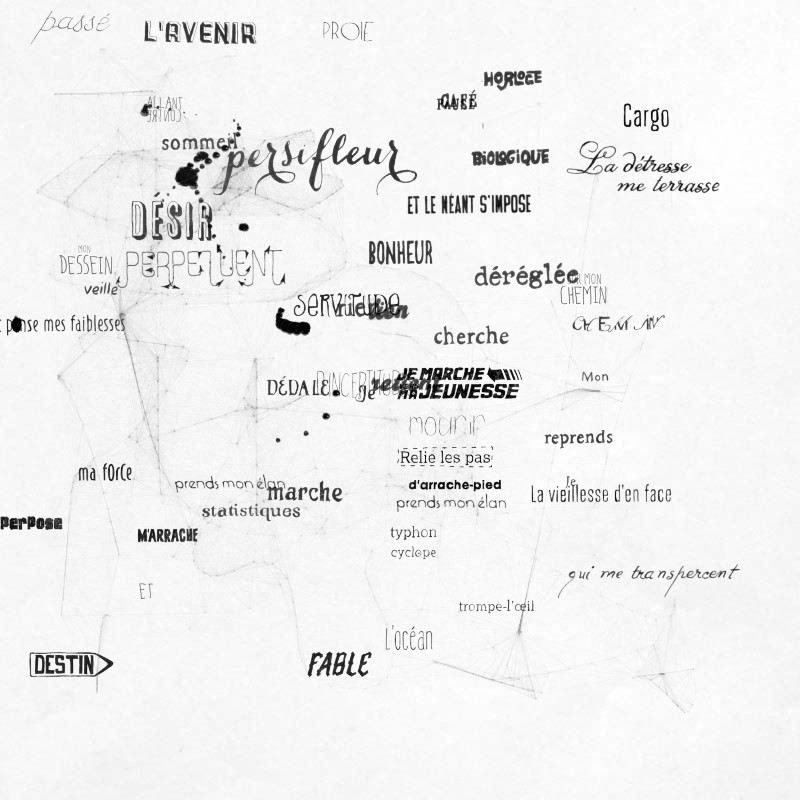 passé
L'AVENIR
PROIE
HORLOGE
CAFÉ
ALLANT
CONTRE
Cargo
sommeil
persifleur
BIOLOGIQUE
La détresse
me terrasse
DÉSIR
ET LE NÉANT S'IMPOSE
BONHEUR
MON
DESSEIN
PERPETUENT
veille
déréglée
MON
CHEMIN
SERVITUDE
panse mes faiblesses
CHEMIN
cherche
DÉDALE
D'INCERTITUDE
Je
JE MARCHE
MA JEUNESSE
Mon
mourir
reprends
Relie les pas
ma fORce
prends mon élan
marche
d'arrache-pied
prends mon élan
Je
La vieillesse d'en face
statistiques
perpose
M'ARRACHE
typhon
cyclope
qui me transpercent
ET
trompe-l'œil
L'océan
DESTIN
FABLE